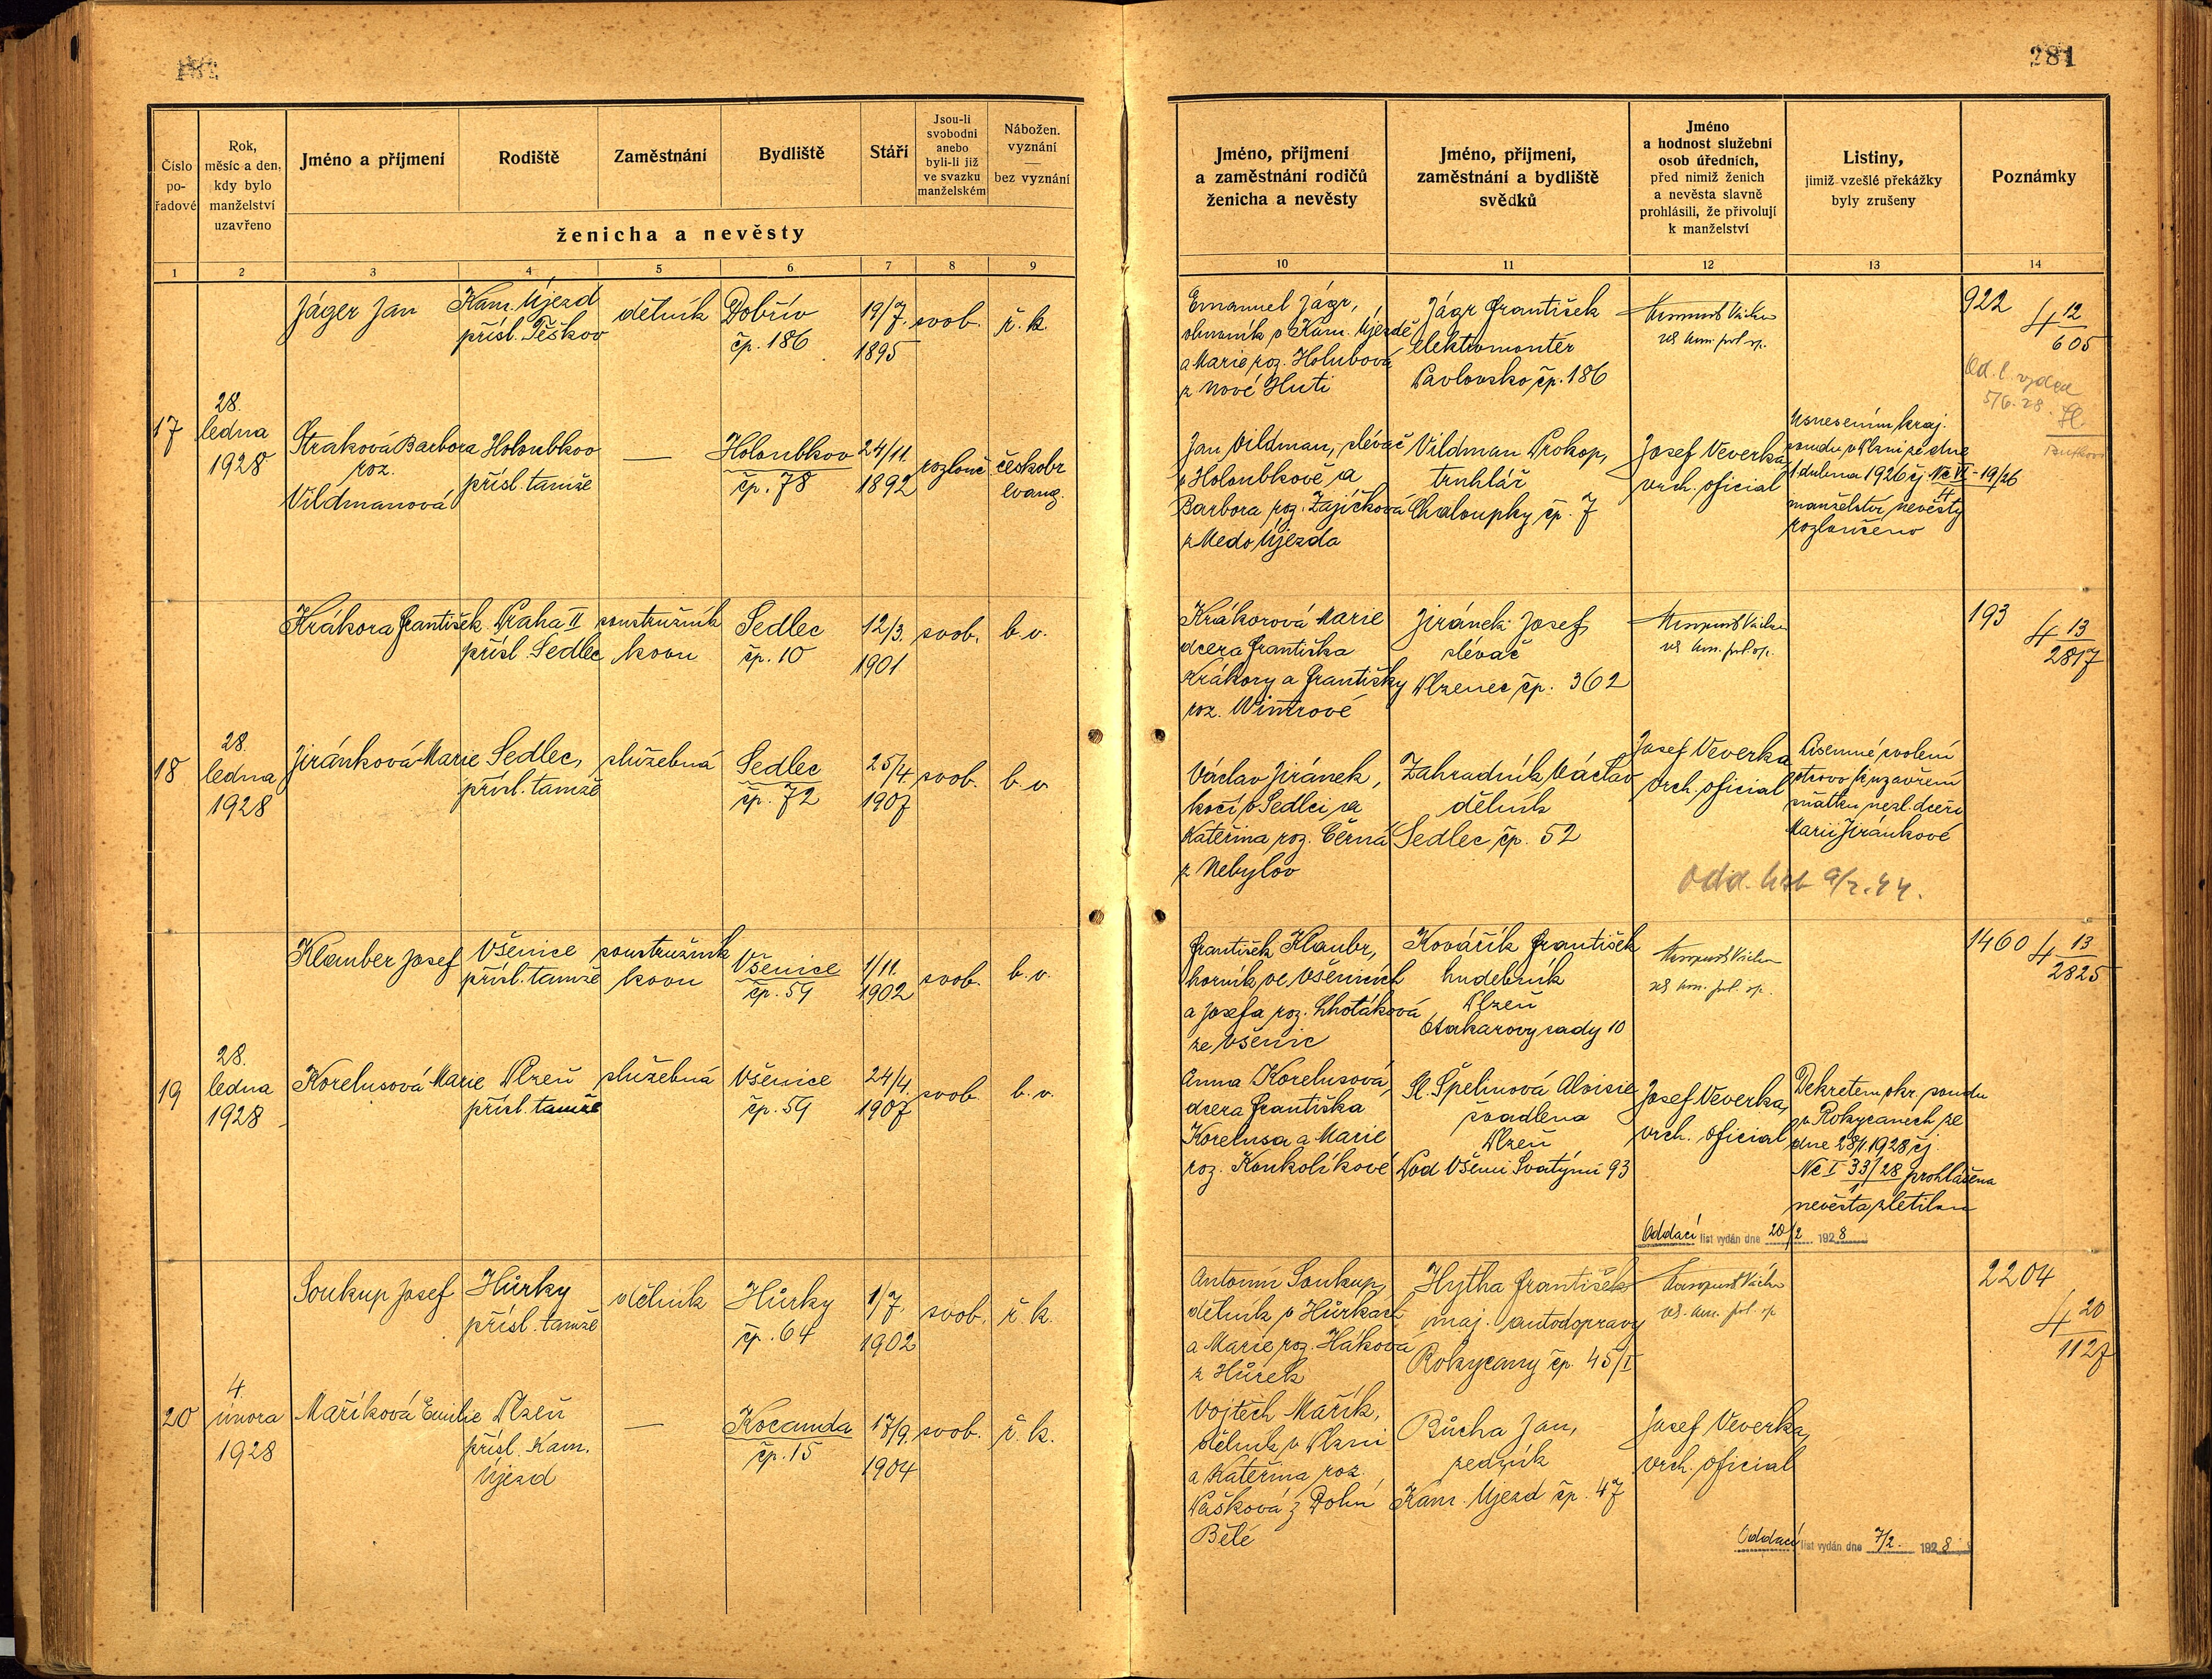 281
Číslo pořadové
Rok, měsíc a den, kdy bylo manželství uzavřeno
Jméno a příjmení
Rodiště
Zaměstnání
Bydliště
Stáří
Jsou-li svobodni anebo byli-li již ve svazku manželském
Nábožen. vyznání — bez vyznání
ženicha a nevěsty
Jméno, příjmení a zaměstnání rodičů ženicha a nevěsty
Jméno, příjmení, zaměstnání a bydliště svědků
Jméno a hodnost služební osob úředních, před nimiž ženich a nevěsta slavně prohlásili, že přivolují k manželství
Listiny, jimiž vzešlé překážky byly zrušeny
Poznámky
1 2 3 4 5 6 7 8 9 10 11 12 13 14
17
28.
ledna
1928
Jáger Jan
Kam. Újezd
přísl. Těškov
dělník
Dobřív
čp. 186
19/7.
1895
svob.
ř. k.
Emanuel Jágr,
v Kam. Újezdě
a Marie roz. Holubová
z Nové Huti
Jágr František
elektromontér
Pavlovsko čp. 186
922
4 12
605
Straková Barbora
roz.
Vildmanová
Holoubkov
přísl. tamže
—
Holoubkov
čp. 78
24/11.
1892
rozlouč.
českobr
evang.
Jan Vildman, slévač
v Holoubkově a
Barbora roz. Zajíčková
z Medo Újezda
Vildman Prokop,
truhlář
Chaloupky čp. 7
Josef Veverka
vrch. oficial
Usnesením kraj.
soudu v Plzni ze dne
1. dubna 1926 čj. Nc VI - 19/26
4
manželství nevěsty
rozloučeno
Od. l. vydán
5/6. 28.
18
28.
ledna
1928
Krákora František
Praha II
přísl. Sedlec
soustružník
kovu
Sedlec
čp. 10
12/3.
1901
svob.
b. v.
Krákorová Marie
dcera Františka
Krákory a Františky
roz. Wintrové
Jiránek Josef,
slévač
Plzenec čp. 362
193
4 13
2817
Jiránková Marie
Sedlec,
přísl. tamže
služebná
Sedlec
čp. 72
25/4.
1907
svob.
b. v.
Václav Jiránek,
kočí v Sedlci, a
Kateřina roz. Černá
z Nebylov
Zahradník Václav
dělník
Sedlec čp. 52
Josef Veverka
vrch. oficial
Písemné svolení
otcovo k uzavření
sňatku nezl. dceři
Marii Jiránkové
19
28.
ledna
1928
Klauber Josef
Všenice
přísl. tamže
soustružník
kovu
Všenice
čp. 59
1/11.
1902
svob.
b. v.
František Klaubr,
horník ve Všenicích
a Josefa roz. Lhotáková
ze Všenic
Kovářík František
hudebník
Plzeň
Otakarovy sady 10
1460
4 13
2825
Korelusová Marie
Plzeň
přísl. tamže
služebná
Všenice
čp. 59
24/4.
1907
svob.
b. v.
Anna Korelusová,
dcera Františka
Korelusa a Marie
roz. Koukolíkové
Sl. Špelinová Aloisie
švadlena
Plzeň
Pod Všemi Svatými 93
Josef Veverka,
vrch. oficial
Dekretem okr. soudu
v Rokycanech ze
dne 28/1. 1928 čj.
Nc I 33/28 prohlášena
1
nevěsta zletilou
Oddací list vydán dne 20/2 1928
20
4.
února
1928
Soukup Josef
Hůrky
přísl. tamže
dělník
Hůrky
čp. 64
1/7.
1902
svob.
ř. k.
Antonín Soukup,
dělník v Hůrkách
a Marie roz. Háková
z Hůrek
Hytha František
maj. autodopravy
Rokycany čp. 45/I
2204
4 20
1127
Maříková Emilie
Plzeň
přísl. Kam.
Újezd
—
Kocanda
čp. 15
17/9.
1904
svob.
ř. k.
Vojtěch Mařík,
dělník v Plzni
a Kateřina roz.
Pašková z Dolní
Bělé
Bůcha Jan,
Kam. Újezd čp. 47
Josef Veverka,
vrch. oficial
Oddací list vydán dne 7/2. 1928